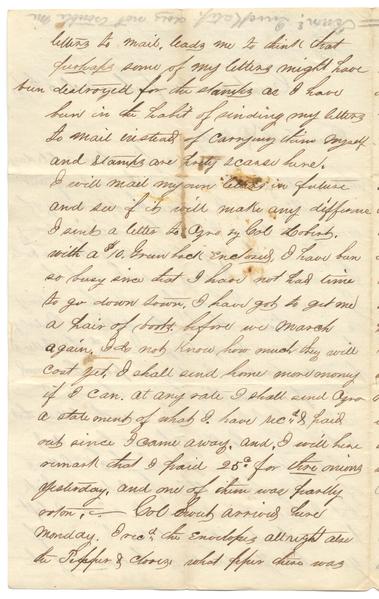 letters to mail, leads me to think that
perhaps some of my letters might have
been destroyed for the stamps as I have
been in the habit of sending my letters
to mail instead of carrying them myself
and stamps are very scarse here.
I will mail my own letters in future
and see if it will make any difference
I sent a letter to by Col Hobert.
with a $10. Green back Enclosed, I have been
so busy since that I have not had time
to go down town. I have got to get me
a pair of boots before we march
again. I do not know how much they will
cost yet. I shall send home more money
if I can. at any rate I shall send
a statement of what I have rec.d & paid
out since I came away. and, I will here
remark that I paid 25c for three onions
yesterday. and one of them was partly
roten. — Col arrived here
Monday. I rec.d the Envelopes all right also
the Pepper & cloves what pper there was